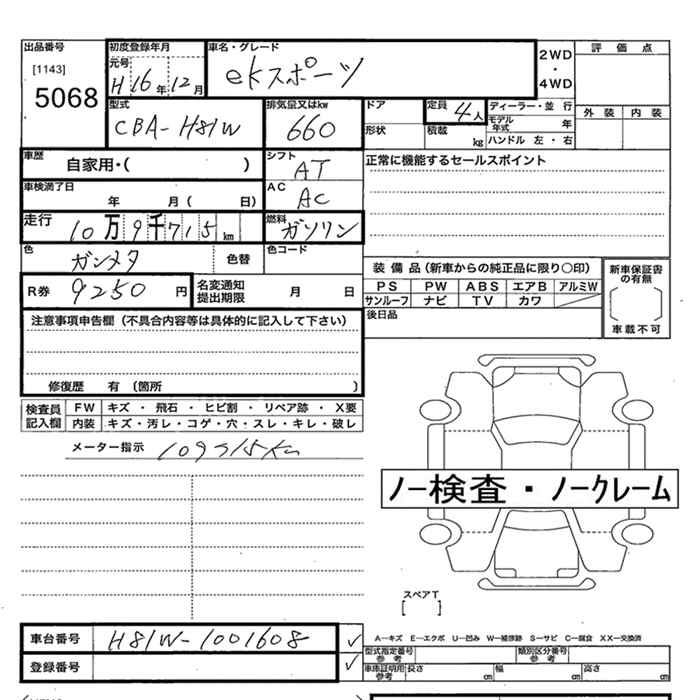 出品番号 初度登録年月 車名・グレード 2WD・4WD 評価点
[1143] 元号 H16年12月 ekスポーツ
5068 型式 排気量又はkw ドア 定員 4人 ディーラー・並行 外装 内装
CBA-H81W 660 形状 積載 kg モデル年式 年
ハンドル 左・右
車歴 自家用・( ) シフト AT 正常に機能するセールスポイント
車検満了日 年 月( 日) AC AC
走行 10万9千715km 燃料 ガソリン
色 ガンメタ 色替 色コード
装備品(新車からの純正品に限り〇印) 新車保証書の有無
R券 9250円 名変通知提出期限 月 日 PS PW ABS エアB アルミW
サンルーフ ナビ TV カワ
注意事項申告欄(不具合内容等は具体的に記入して下さい) 後日品 車載不可
修復歴 有(箇所 )
検査員記入欄 FW キズ・飛石・ヒビ割・リペア跡・X要
内装 キズ・汚レ・コゲ・穴・スレ・キレ・破レ
メーター指示 109715Km
ノー検査・ノークレーム
スペアT
[ ]
車台番号 H81W-1001608 ✓ A-キズ E-エクボ U-凹み W-補修跡 S-サビ C-腐食 XX-交換済
登録番号 ✓ 型式指定番号参考 類別区分番号参考
車庫証明用参考 長さ cm 幅 cm 高さ cm